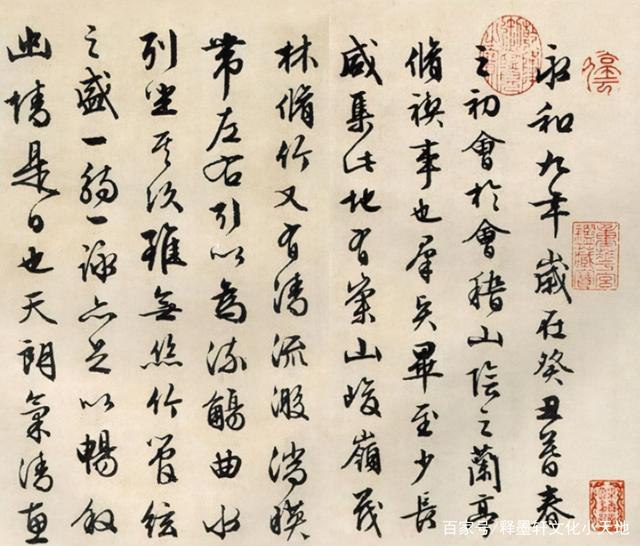 永和九年歲在癸丑暮春
之初會於會稽山陰之蘭亭
脩禊事也羣賢畢至少長
咸集此地有崇山峻嶺茂
林脩竹又有清流激湍暎
帶左右引以為流觴曲水
列坐其次雖無絲竹管絃
之盛一觴一詠亦足以暢叙
幽情是日也天朗氣清惠
重華宮鑑藏寶
百家号/释墨轩文化小天地